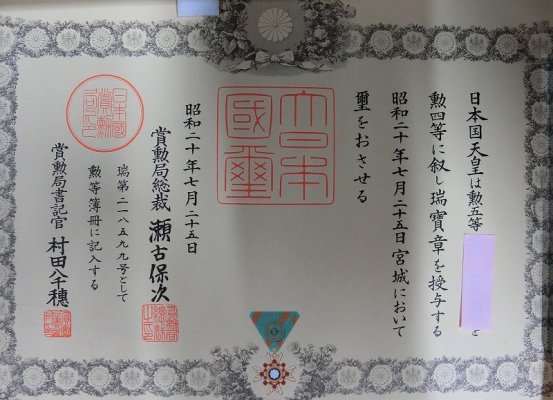 日本国天皇は勲五等
を
勲四等に叙し瑞寶章を授与する
昭和二十年七月二十五日宮城において
璽をおさせる
大日本
國璽
昭和二十年七月二十五日
賞勲局総裁 瀬古保次
瑞第二一八五九九号として
勲等簿冊に記入する
賞勲局書記官 村田八千穂
日本國
賞勲
局印